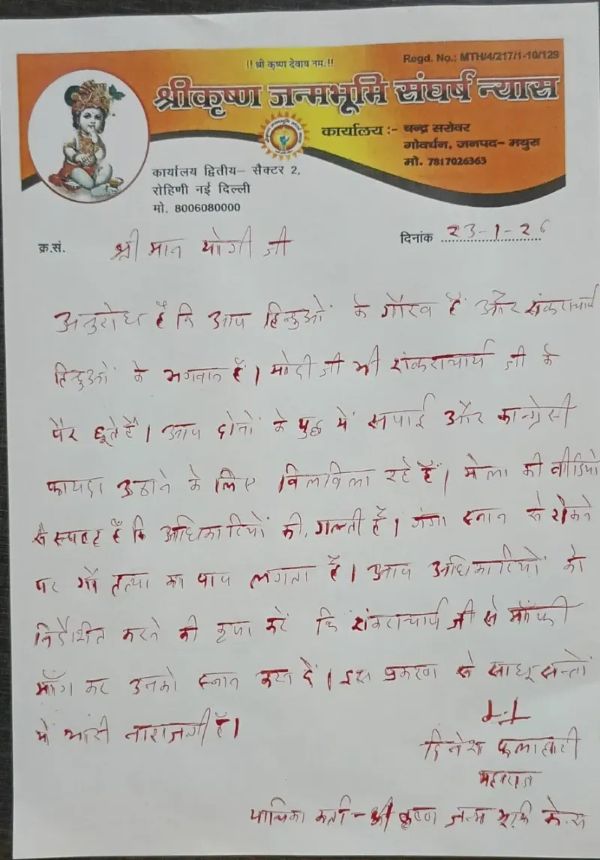 !! श्री कृष्ण देवाय नमः !!
Regd. No.: MTH/4/217/1-10/129
श्रीकृष्ण जन्मभूमि संघर्ष न्यास
कार्यालय :- चन्द्र सरोवर
गोवर्धन, जनपद- मथुरा
मो. 7817026363
कार्यालय द्वितीय- सैक्टर 2,
रोहिणी नई दिल्ली
मो. 8006080000
क्र.सं.
दिनांक 23-1-26
श्री मान योगी जी
अनुरोध है कि आप हिन्दुओं के गौरव हैं और शंकराचार्य
हिन्दुओं के भगवान हैं। मोदी जी भी शंकराचार्य जी के
पैर छूते हैं। आप दोनों के युद्ध में सपाई और कान्ग्रेसी
फायदा उठाने के लिए बिलबिला रहे हैं। मेला की वीडियो
से स्पष्ट है कि अधिकारियों की गल्ती है। गंगा स्नान से रोकने
पर गौ हत्या का पाप लगता है। आप अधिकारियों को
निर्देशित करने की कृपा करें कि शंकराचार्य जी से माँफी
माँग कर उनको स्नान करा दें। इस प्रकरण से साधू सन्तों
में भारी नाराजगी है।
दिनेश फलाहारी
महाराज
याचिका कर्ता - श्री कृष्ण जन्म भूमि केस